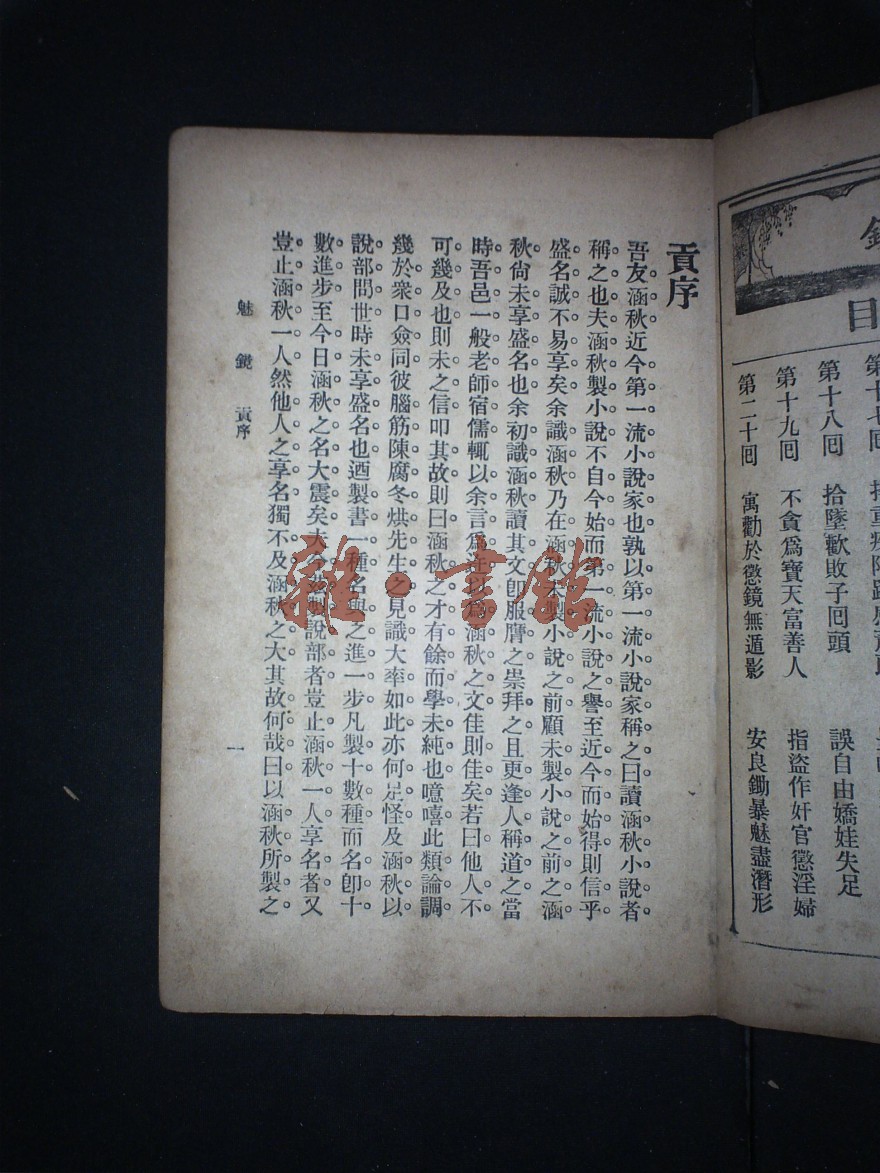 鏡
目
第十八回 拾墜歡敗子回頭 誤自由嬌娃失足
第十九回 不貪爲寶天富善人 指盜作奸官懲淫婦
第二十回 寓勸於懲鏡無遁影 安良鋤暴魅盡潛形
貢序
吾友涵秋近今第一流小說家也孰以第一流小說家稱之曰讀涵秋小說者
稱之也夫涵秋製小說不自今始而第一流小說之譽至近今而始得則信乎
盛名誠不易享矣余識涵秋乃在涵秋未製小說之前顧未製小說之前之涵
秋尙未享盛名也余初識涵秋讀其文卽服膺之崇拜之且更逢人稱道之當
時吾邑一般老師宿儒輒以余言爲迂以爲涵秋之文佳則佳矣若曰他人不
可幾及也則未之信叩其故則曰涵秋之才有餘而學未純也噫嘻此類論調
幾於衆口僉同彼腦筋陳腐冬烘先生之見識大率如此亦何足怪及涵秋以
說部問世時未享盛名也迺製書一種名與之進一步凡製十數種而名卽十
數進步至今日涵秋之名大震矣夫今茲製說部者豈止涵秋一人享名者又
豈止涵秋一人然他人之享名獨不及涵秋之大其故何哉曰以涵秋所製之
魅鏡 貢序
一
雜·書館